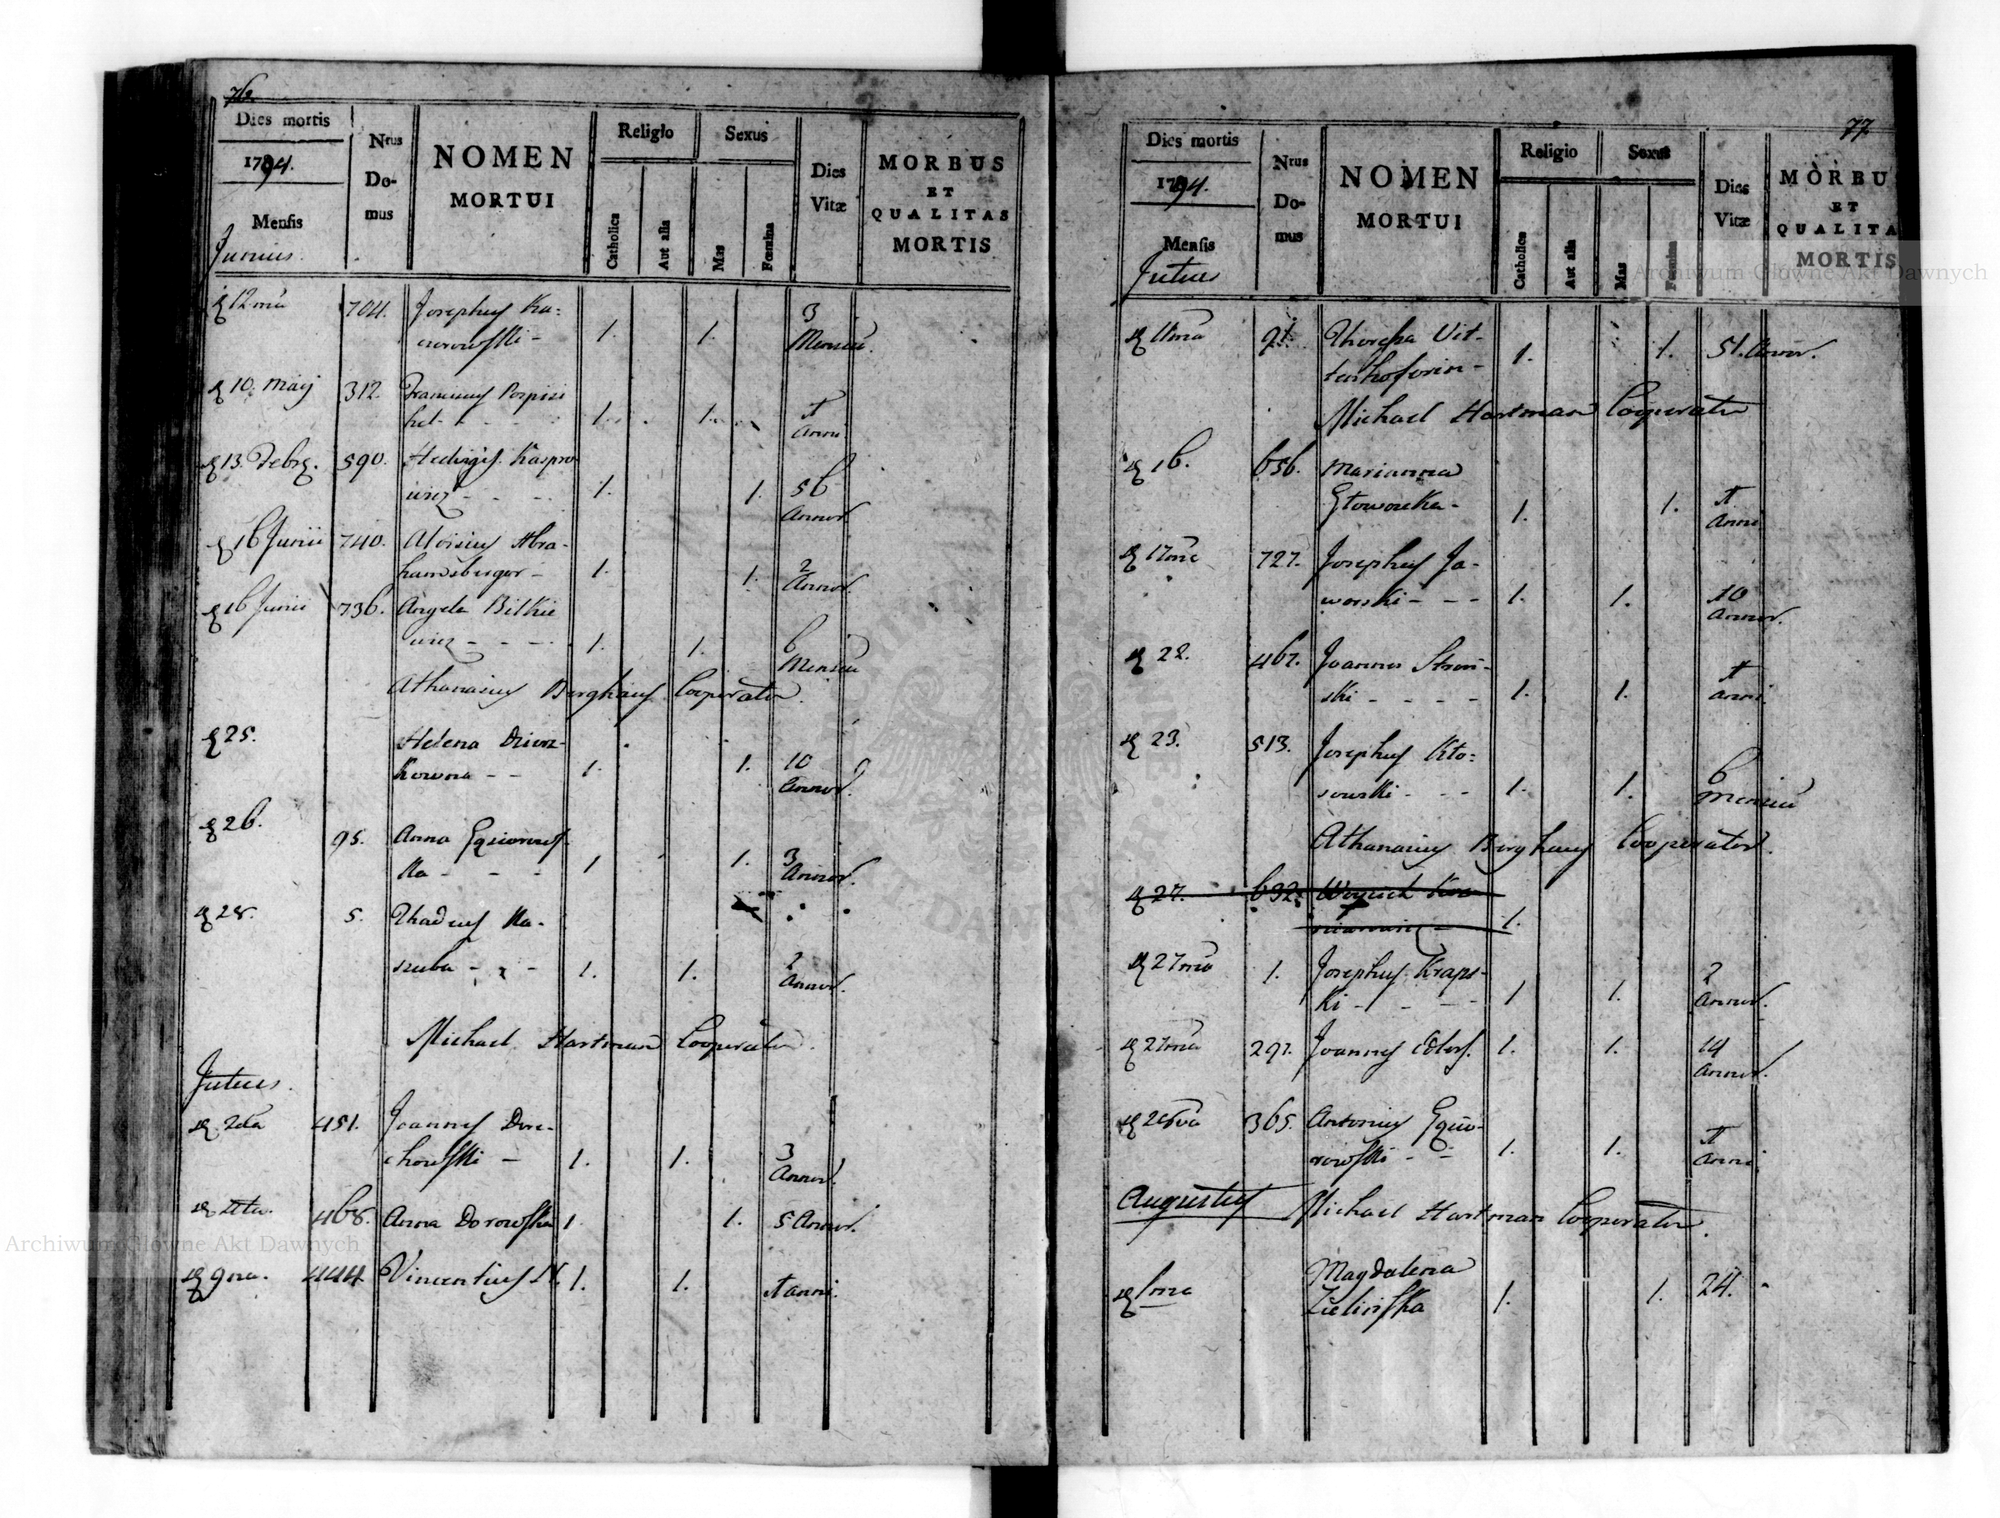 76.
Dies mortis
1794.
Mensis
Junius.
Nrus
Do-
mus
NOMEN
MORTUI
Religio
Catholica
Aut alia
Sexus
Mas
Fœmina
Dies
Vitæ
MORBUS
ET
QUALITAS
MORTIS
12ma 704. Josephus Ka-
1. 1. 3
Mensiu.
10. Maij 312. Franciscus Pospisi
hel 1. 1. 1
Anni
13. Febrg. 590. Hedvigis Kaspro
wicz 1. 1. 56
Annor.
16 Junii 740. Aloisius Abra-
hamsberger 1. 1. 2
Annor.
16 Junii 736. Angela Bilkie
wicz 1. 1. 6
Mensiu
Athanasius Berghaus Cooperator.
25. Helena
kowna 1. 1. 10
Annor.
26.
95. Anna
ska 1 1. 3
Annor.
28. 5. Thadeus Ka-
szuba 1. 1. 2
Annor.
Michael Hartman Cooperator.
Julius.
2da 451. Joannes Dore-
chowski 1. 1. 3
Annor.
4ta. 468. Anna Dorowska 1. 1. 5 Annor.
9na. 444 Vincentius N. 1. 1. 1 anni.
77.
Dies mortis
1794.
Mensis
Julius
Nrus
Do-
mus
NOMEN
MORTUI
Religio
Catholica
Aut alia
Sexus
Mas
Fœmina
Dies
Vitæ
MORBU
ET
QUALITA
MORTIS
11ma 91. Theresia Vit-
1. 1. 51. Annor.
Michael Hartman Cooperator
16. 656. Marianna
Głowacka 1. 1. 1
Anni
17ma 727. Josephus Ja-
worski 1. 1. 10
Annor.
22. 467. Joannes Stron-
ski 1. 1. 1
Anni.
23. 513. Josephus Kło-
sowski 1. 1. 6
Mensiu
Athanasius Berghaus Cooperator.
27. 632.
1.
27ma 1. Josephus Kraps-
ki 1 1. 2
Annor.
27ma 297. Joannes 1. 1. 14
Annor.
28va 365. Antonius
rowski 1. 1. 1
Anni.
Augustus Michael Hartman Cooperator.
1ma Magdalena
Zielinska 1. 1. 24.
Archiwum Główne Akt Dawnych
Archiwum Główne Akt Dawnych